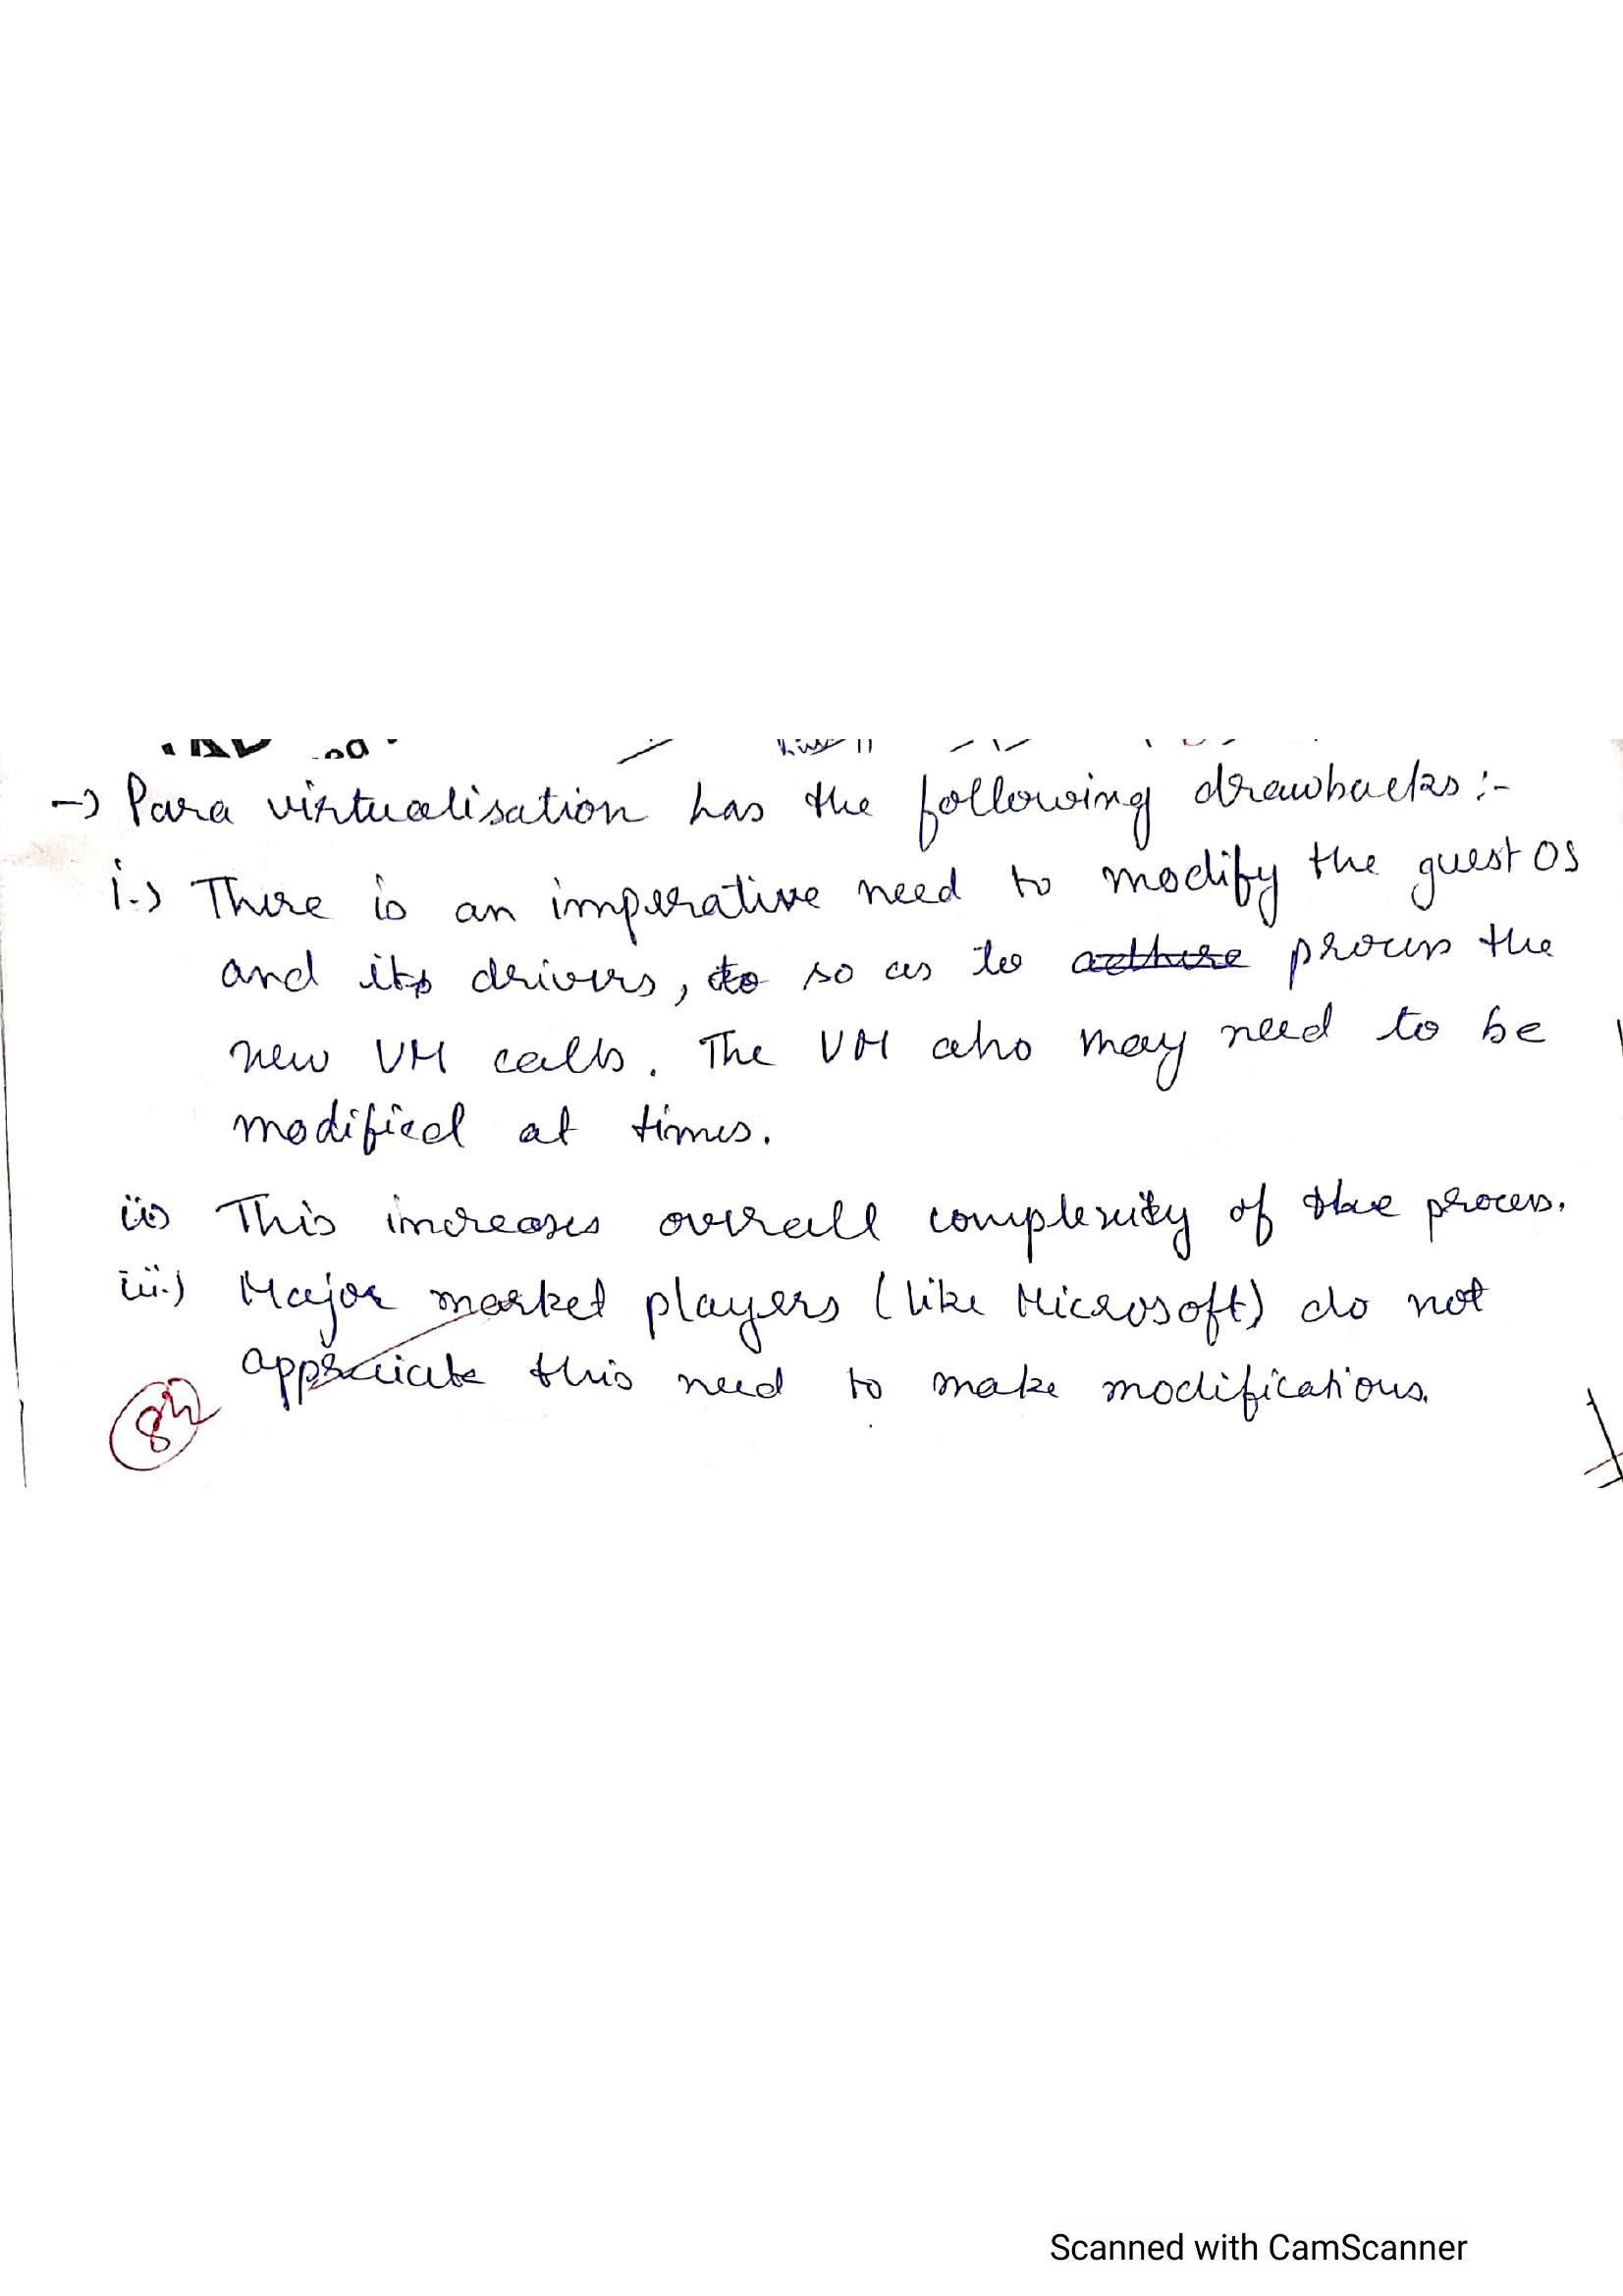 -> Para virtualisation has the following drawbacks :-
i.) There is an imperative need to modify the guest OS
and its drivers, to so as to process the
new VM calls. The VM also may need to be
modified at times.
ii) This increases overall complexity of the process.
iii.) Major market players (like Microsoft) do not
appreciate this need to make modifications.
8½
Scanned with CamScanner